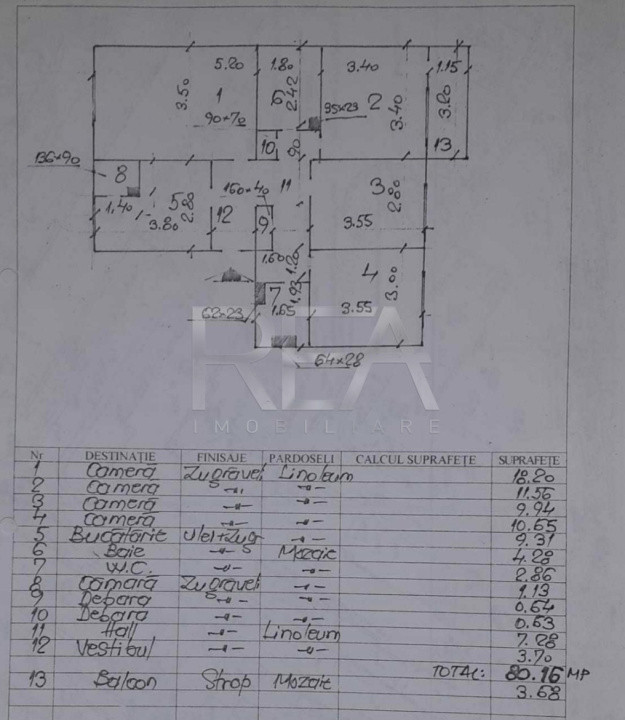 5.20
1.80
3.40
1.15
3.50
1
90×70
6
2.42
95×23
2
3.40
3.20
136×90
10
90
13
8
1.40
5
2.80
3.80
12
160×40
11
3
2.80
3.55
9
1.60
1.20
4
3.00
7
1.93
1.65
3.55
62×23
64×28
REA
IMOBILIARE
Nr DESTINAȚIE FINISAJE PARDOSELI CALCUL SUPRAFEȚE SUPRAFEȚE
1 Cameră Zugrăveli Linoleum 18.20
2 Cameră -"- -"- 11.56
3 Cameră -"- -"- 9.94
4 Cameră -"- -"- 10.65
5 Bucătărie Ulei+Zugr -"- 9.31
6 Baie -"- Mozaic 4.28
7 W.C. -"- -"- 2.86
8 Cămară Zugrăveli -"- 1.13
9 Debara -"- -"- 0.64
10 Debara -"- -"- 0.63
11 Hall -"- Linoleum 7.28
12 Vestibul -"- -"- 3.70
TOTAL: 80.16 MP
13 Balcon Strop Mozaic 3.68